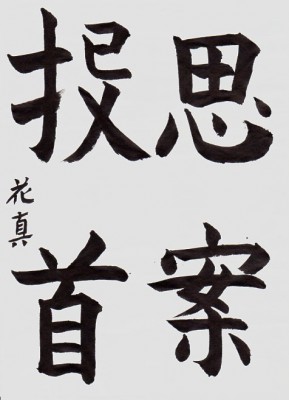 思案
投首
花真